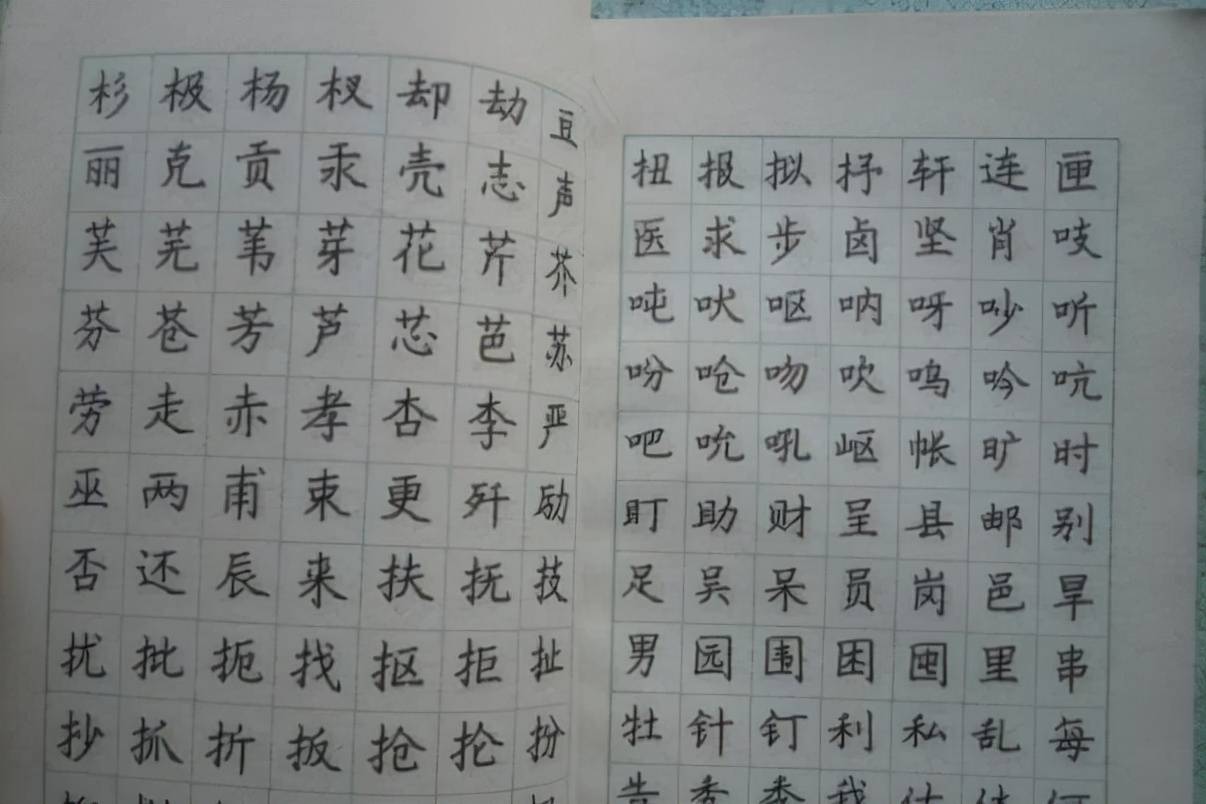 杉极杨杈却劫豆
丽克贡汞壳志声
芙芜苇芽花芹芥
芬苍芳芦芯芭苏
劳走赤孝杏李严
巫两甫束更歼励
否还辰来扶抚技
扰批扼找抠拒扯
抄抓折扳抢抡扮
扭报拟抒轩连匣
医求步卤坚肖吱
吨吠呕呐呀吵听
吩呛吻吹呜吟吭
吧吮吼岖帐旷时
盯助财呈县邮别
足吴呆员岗邑旱
男园围困囤里串
牡针钉利私乱每
告秀委我估体何